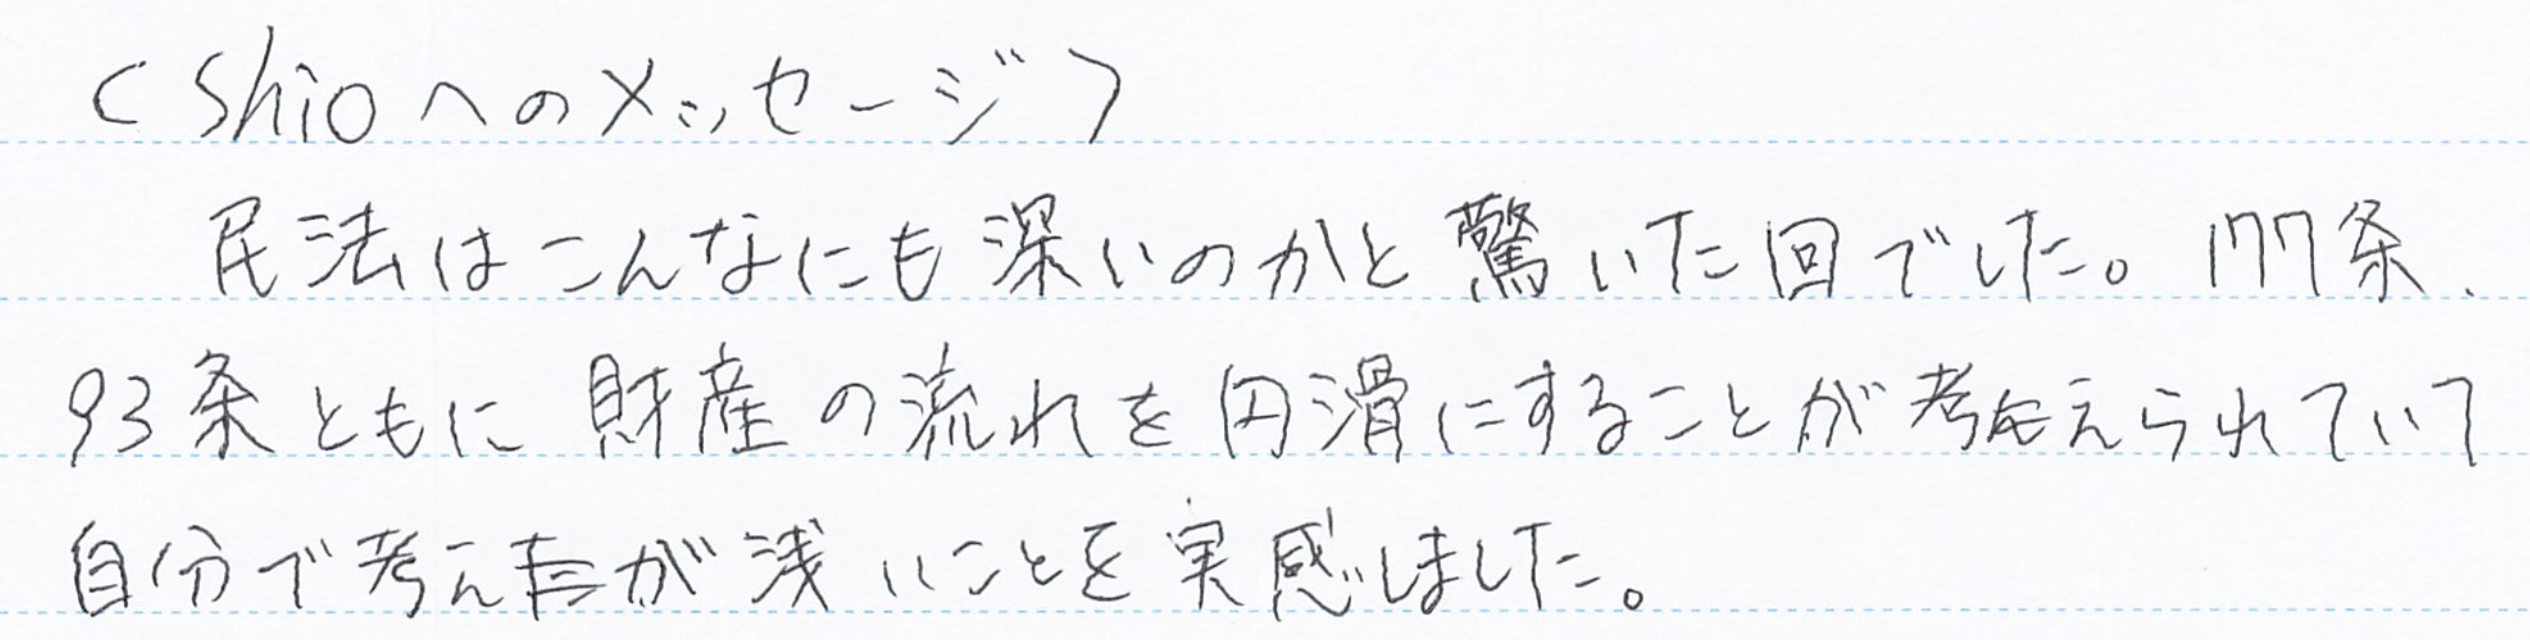 (Shioへのメッセージ)
民法はこんなにも深いのかと驚いた回でした。177条、
93条ともに財産の流れを円滑にすることが考えられていて
自分で考えが浅いことを実感しました。